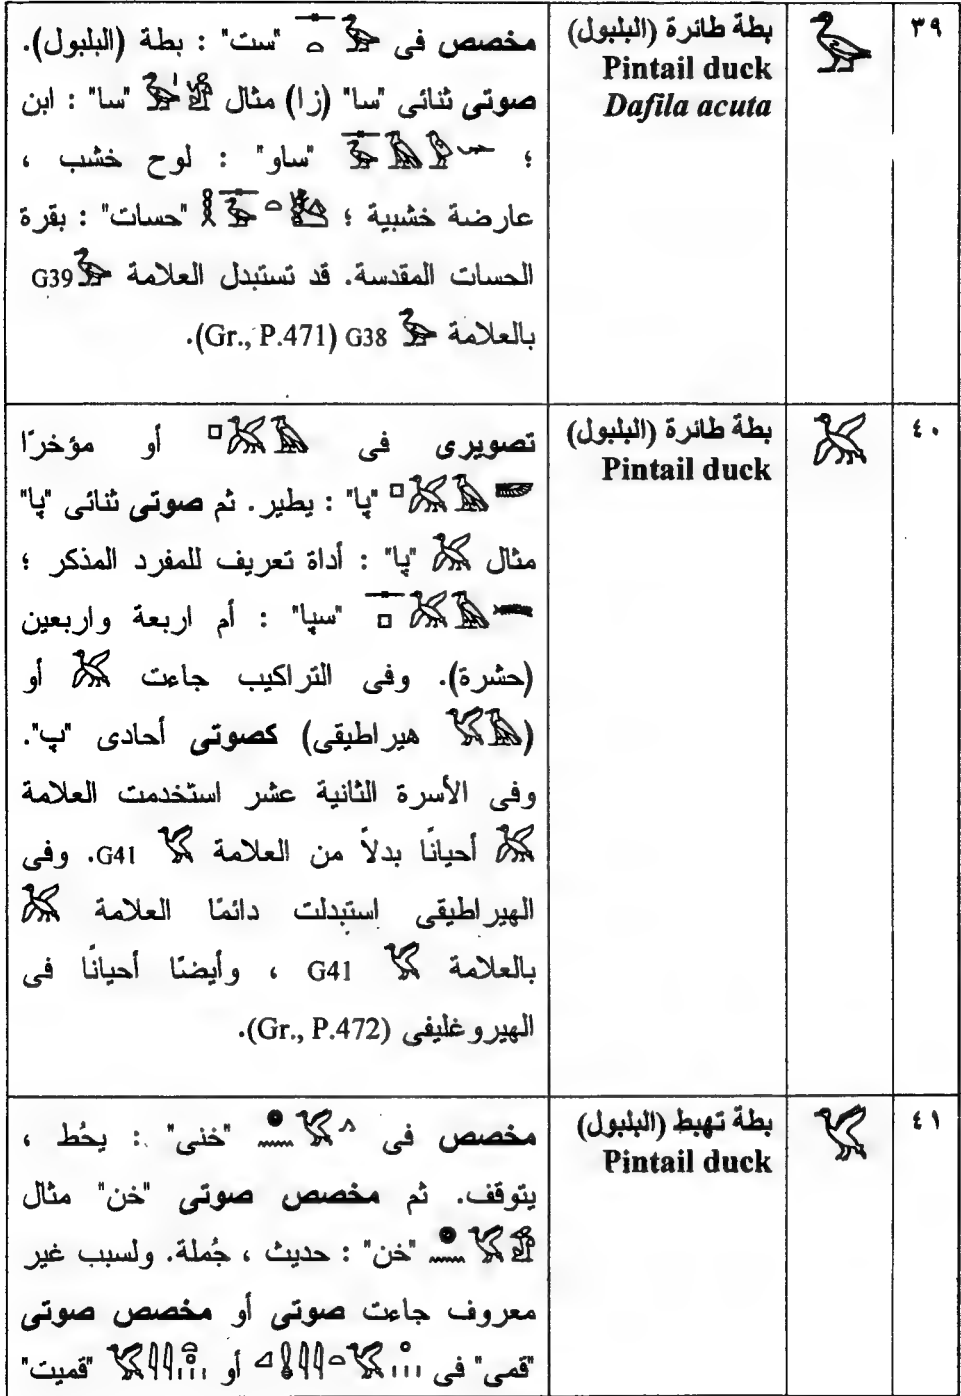 ٣٩ 𓅭 بطة طائرة (البلبول) مخصص فى "ست" : بطة (البلبول).
Pintail duck صوتى ثنائى "سا" (زا) مثال "سا" : ابن
Dafila acuta ؛ "ساو" : لوح خشب ،
عارضة خشبية ؛ "حسات" : بقرة
الحسات المقدسة. قد تستبدل العلامة 𓅭 G39
بالعلامة 𓅬 G38 (Gr., P.471).
٤٠ 𓅮 بطة طائرة (البلبول) تصويرى فى 𓊪𓅮𓄿 أو مؤخرًا
Pintail duck "پا" : يطير. ثم صوتى ثنائى "پا"
مثال 𓅮 "پا" : أداة تعريف للمفرد المذكر ؛
"سپا" : أم اربعة واربعين
(حشرة). وفى التراكيب جاءت 𓅮 أو
(𓅯𓄿 هيراطيقى) كصوتى أحادى "پ".
وفى الأسرة الثانية عشر استخدمت العلامة
𓅮 أحيانًا بدلاً من العلامة 𓅯 G41. وفى
الهيراطيقى استبدلت دائمًا العلامة 𓅮
بالعلامة 𓅯 G41 ، وأيضًا أحيانًا فى
الهيروغليفى (Gr., P.472).
٤١ 𓅯 بطة تهبط (البلبول) مخصص فى "خنى" : يحُط ،
Pintail duck يتوقف. ثم مخصص صوتى "خن" مثال
"خن" : حديث ، جُملة. ولسبب غير
معروف جاءت صوتى أو مخصص صوتى
"قمى" فى أو "قميت"